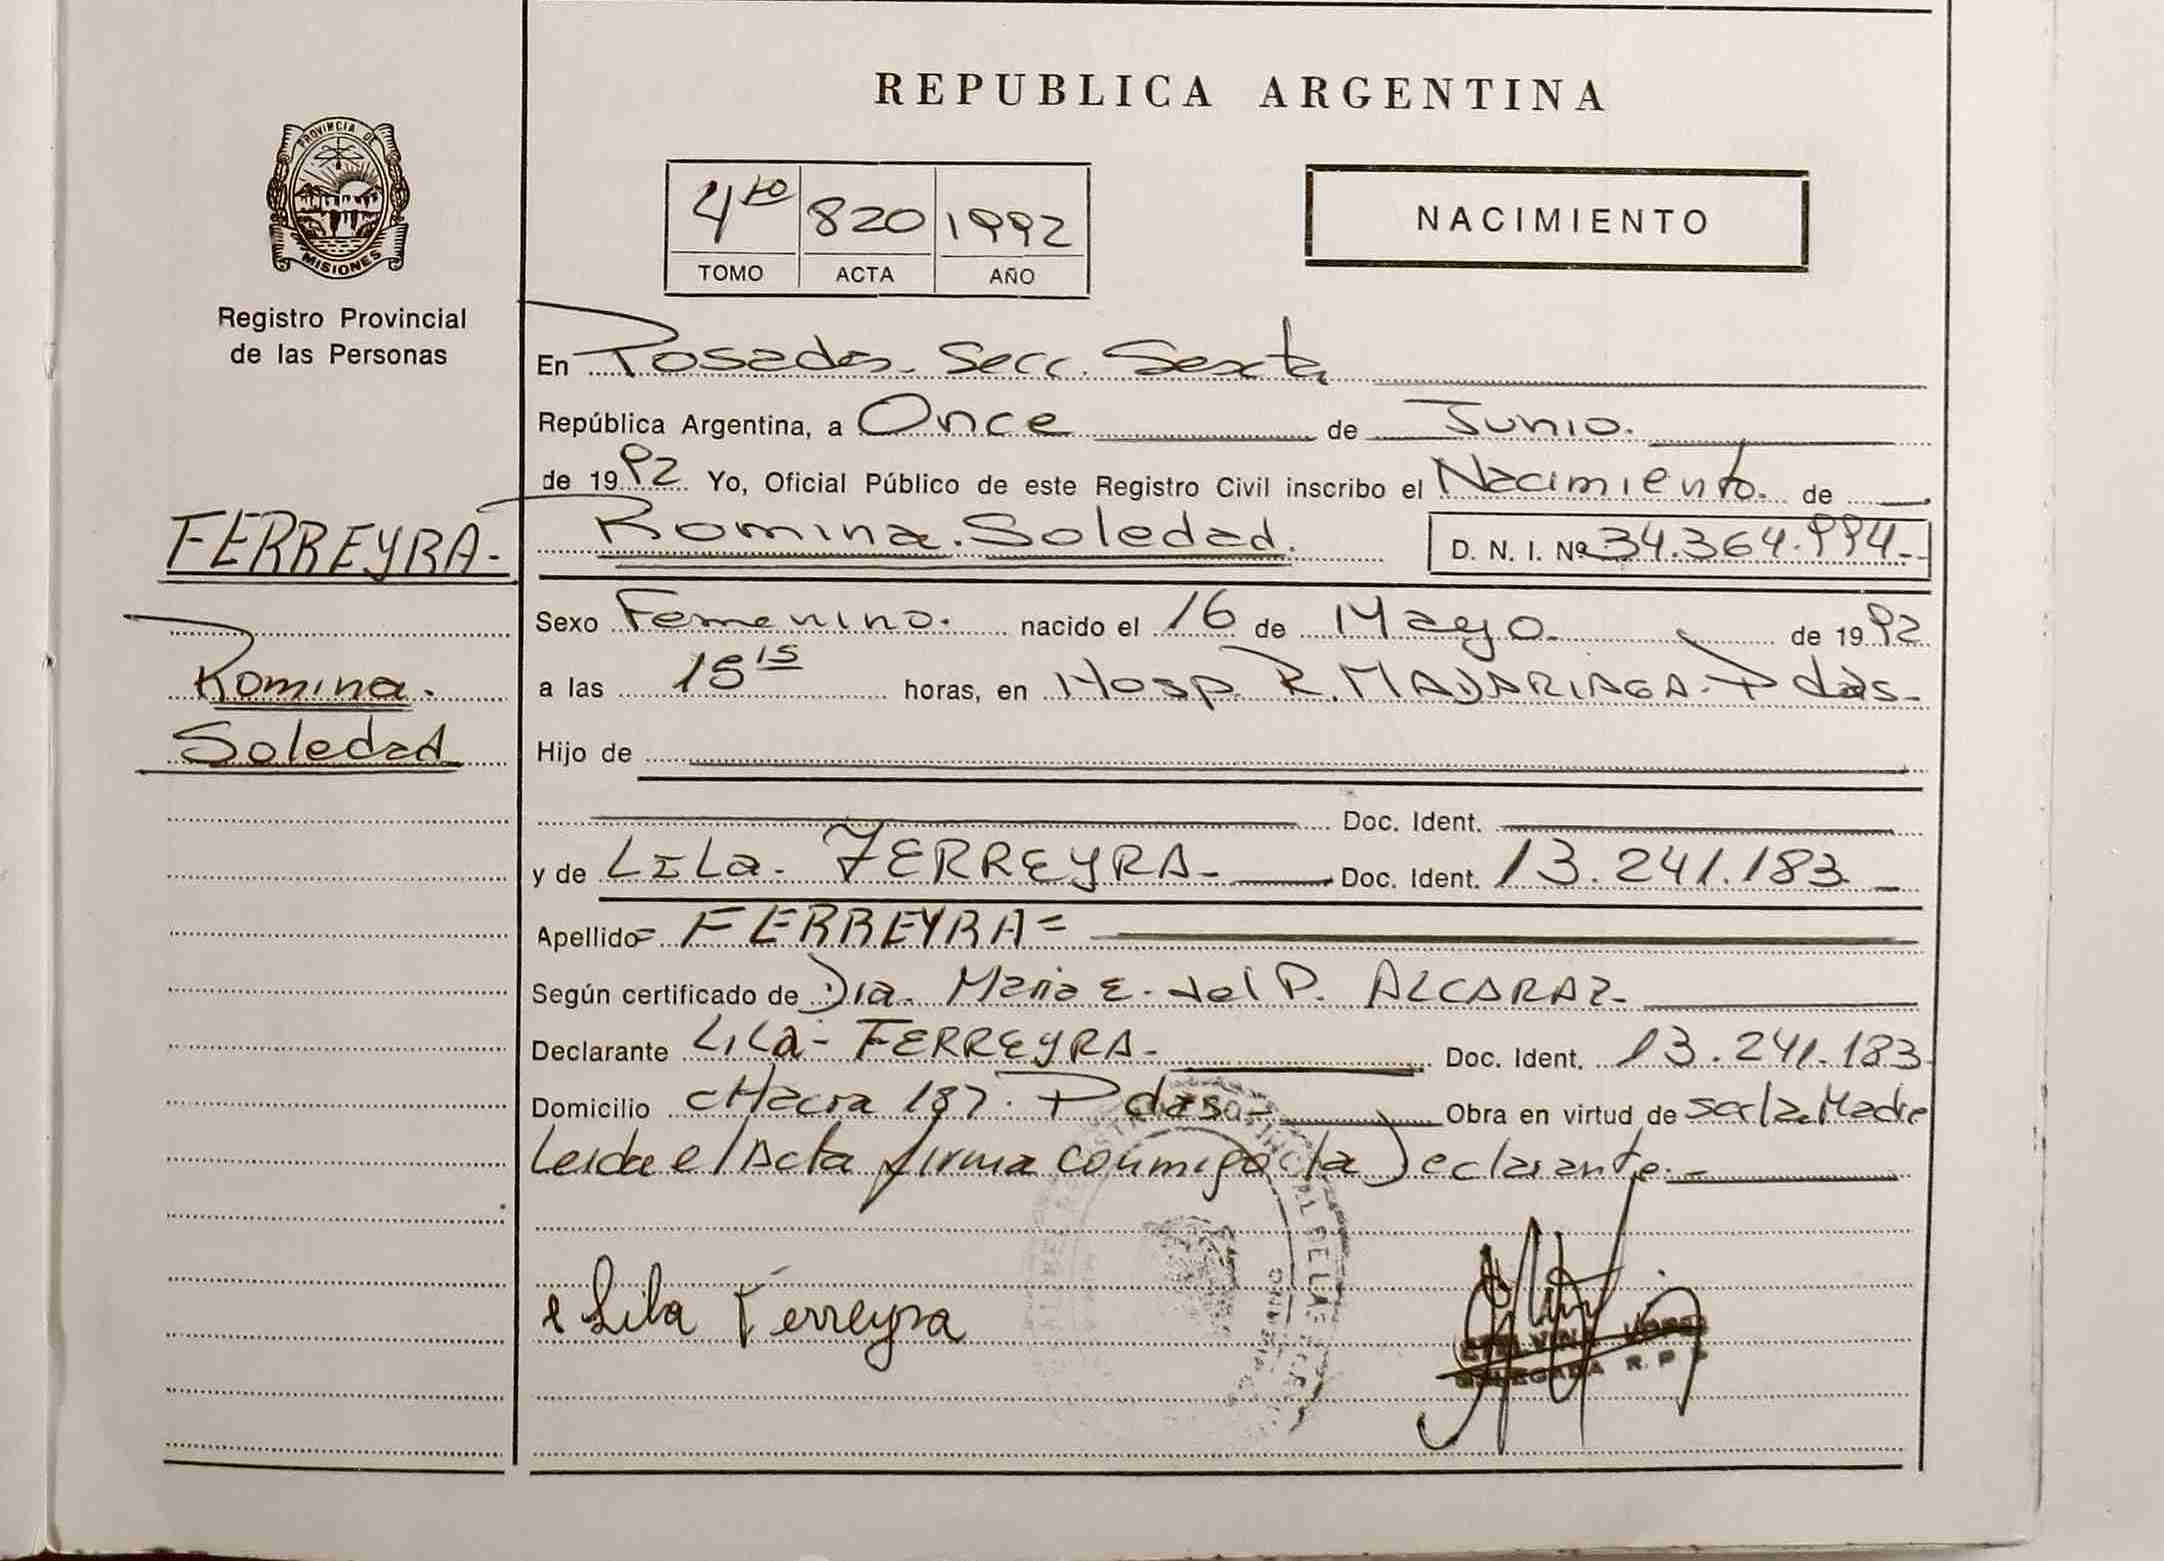 REPUBLICA ARGENTINA
PROVINCIA DE
MISIONES
Registro Provincial
de las Personas
4to 820 1992
TOMO ACTA AÑO
NACIMIENTO
En Posadas. Secc. Sexta
República Argentina, a Once de Junio.
de 1992 Yo, Oficial Público de este Registro Civil inscribo el Nacimiento. de
FERREYRA-
Romina. Soledad. D. N. I. Nº 34.364.994-
Sexo Femenino. nacido el 16 de Mayo. de 1992
Romina.
Soledad
a las 15 15 horas, en Hosp. R. MADARIAGA. Pdas-
Hijo de
Doc. Ident.
y de LiLa- FERREYRA- Doc. Ident. 13.241.183
Apellido= FERREYRA=
Según certificado de Dra. Maria E. del P. ALCARAZ-
Declarante LiLa- FERREYRA- Doc. Ident. 13.241.183
Domicilio cHacra 187. Pdas- Obra en virtud de ser la Madre
Leida el Acta firma conmigo la Declarante.-
Lila Ferreyra
DELEGADA R. P. P